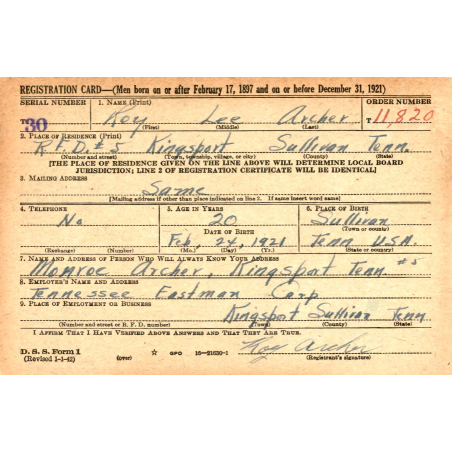 REGISTRATION CARD—(Men born on or after February 17, 1897 and on or before December 31, 1921)
SERIAL NUMBER 1. NAME (Print) ORDER NUMBER
T 30 Roy Lee Archer T11,820
(First) (Middle) (Last)
2. PLACE OF RESIDENCE (Print)
R.F.D. #5 Kingsport Sullivan Tenn.
(Number and street) (Town, township, village, or city) (County) (State)
[THE PLACE OF RESIDENCE GIVEN ON THE LINE ABOVE WILL DETERMINE LOCAL BOARD
JURISDICTION; LINE 2 OF REGISTRATION CERTIFICATE WILL BE IDENTICAL]
3. MAILING ADDRESS
Same
[Mailing address if other than place indicated on line 2. If same insert word same]
4. TELEPHONE 5. AGE IN YEARS 6. PLACE OF BIRTH
No 20 Sullivan
DATE OF BIRTH (Town or county)
Feb, 24, 1921 Tenn U.S.A.
(Exchange) (Number) (Mo.) (Day) (Yr.) (State or country)
7. NAME AND ADDRESS OF PERSON WHO WILL ALWAYS KNOW YOUR ADDRESS
Monroe Archer, Kingsport Tenn #5
8. EMPLOYER'S NAME AND ADDRESS
Tennessee Eastman Corp.
9. PLACE OF EMPLOYMENT OR BUSINESS
Kingsport Sullivan Tenn
(Number and street or R. F. D. number) (Town) (County) (State)
I AFFIRM THAT I HAVE VERIFIED ABOVE ANSWERS AND THAT THEY ARE TRUE.
D. S. S. Form 1 Roy Archer
(Revised 1-1-42) (over) ☆ GPO 16—21630-1 (Registrant's signature)